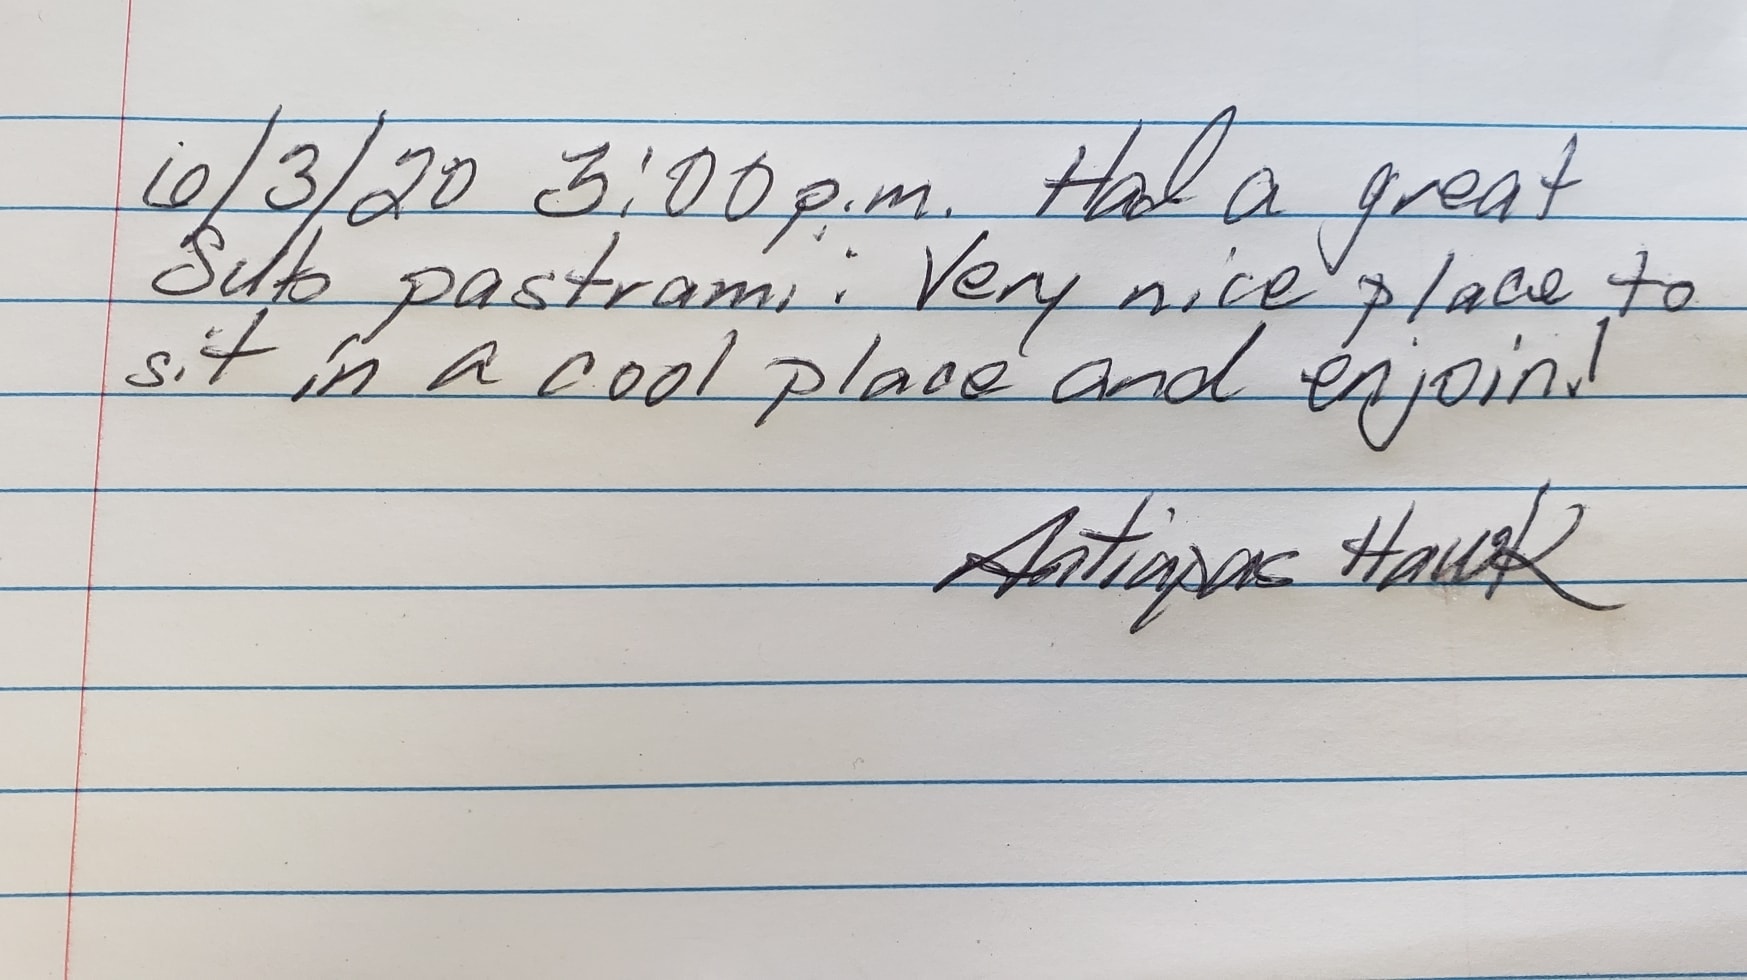 10/3/20 3:00 p.m. Had a great
Sub pastrami: Very nice place to
sit in a cool place and enjoin!
Antiapas Hawk